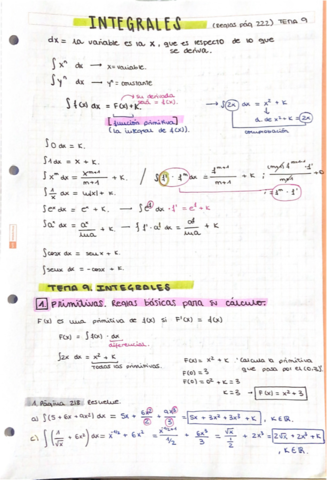 INTEGRALES (Reglas pág 222) TEMA 9
dx = la variable es la x, que es respecto de lo que se deriva.
∫xⁿ dx → x = variable.
∫yⁿ dx → yⁿ = constante
∫f(x) dx = F(x) + K.
su derivada será = f(x).
→ ∫2x dx = x² + K
[función primitiva]
d. de x² + K = 2x
(la integral de f(x)).
comprobación
∫0 dx = K.
∫1 dx = x + K.
∫xᵐ dx = xᵐ⁺¹/m+1 + K / ∫f' · fᵐ dx = fᵐ⁺¹/m+1 + K ;
= fᵐ · f'
∫1/x dx = ln|x| + K.
∫eˣ dx = eˣ + K. → ∫eᶠ dx · f' = eᶠ + K
∫aˣ dx = aˣ/lna + K → ∫f' · aᶠ dx = aᶠ/lna + K
∫cosx dx = senx + K.
∫senx dx = -cosx + K.
TEMA 9. INTEGRALES
1 Primitivas. Reglas básicas para su cálculo.
F(x) es una primitiva de f(x) si F'(x) = f(x)
F(x) = ∫f(x) · dx
diferencial.
∫2x dx = x² + K
todas las primitivas.
F(x) = x² + K · calcula la primitiva que pasa por el (0,3).
F(0) = 3
F(0) = 0² + K = 3
K = 3 → F(x) = x² + 3
1. Página 218. Resuelve.
a) ∫(5 + 6x + 9x²) dx = 5x + 6x²/2 + 9x³/3 = 5x + 3x² + 3x³ + K, K∈ℝ.
c) ∫(1/√x + 6x²) dx = x⁻¹/² + 6x² = x⁻¹/²⁺¹/1/2 + 6x³/3 = √x/1/2 + 2x³ = 2√x + 2x³ + K, K∈ℝ.